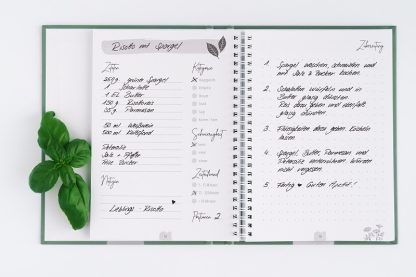 Risotto mit Spargel
Zutaten
250g grüner Spargel
1 Schalotte
1 EL Butter
150 g Risottoreis
35 g Parmesan
50 ml Weißwein
500 ml
Petersilie
Salz + Pfeffer
Butter
Notizen
Lieblings-Risotto
Kategorie
Schwierigkeit
Zeitaufwand
Portionen 2
Zubereitung
1. Spargel waschen, schneiden und
mit Salz & Zucker kochen.
2. Schalotten würfeln und in
Butter glasig dünsten.
Reis dazu geben und ebenfalls
glasig dünsten.
3. Flüssigkeiten dazu geben. Köcheln
lassen
4. Spargel, Butter, Parmesan und
Petersilie unterrühren. Würzen
nicht vergessen.
5. Fertig ♥ Guten Appetit!